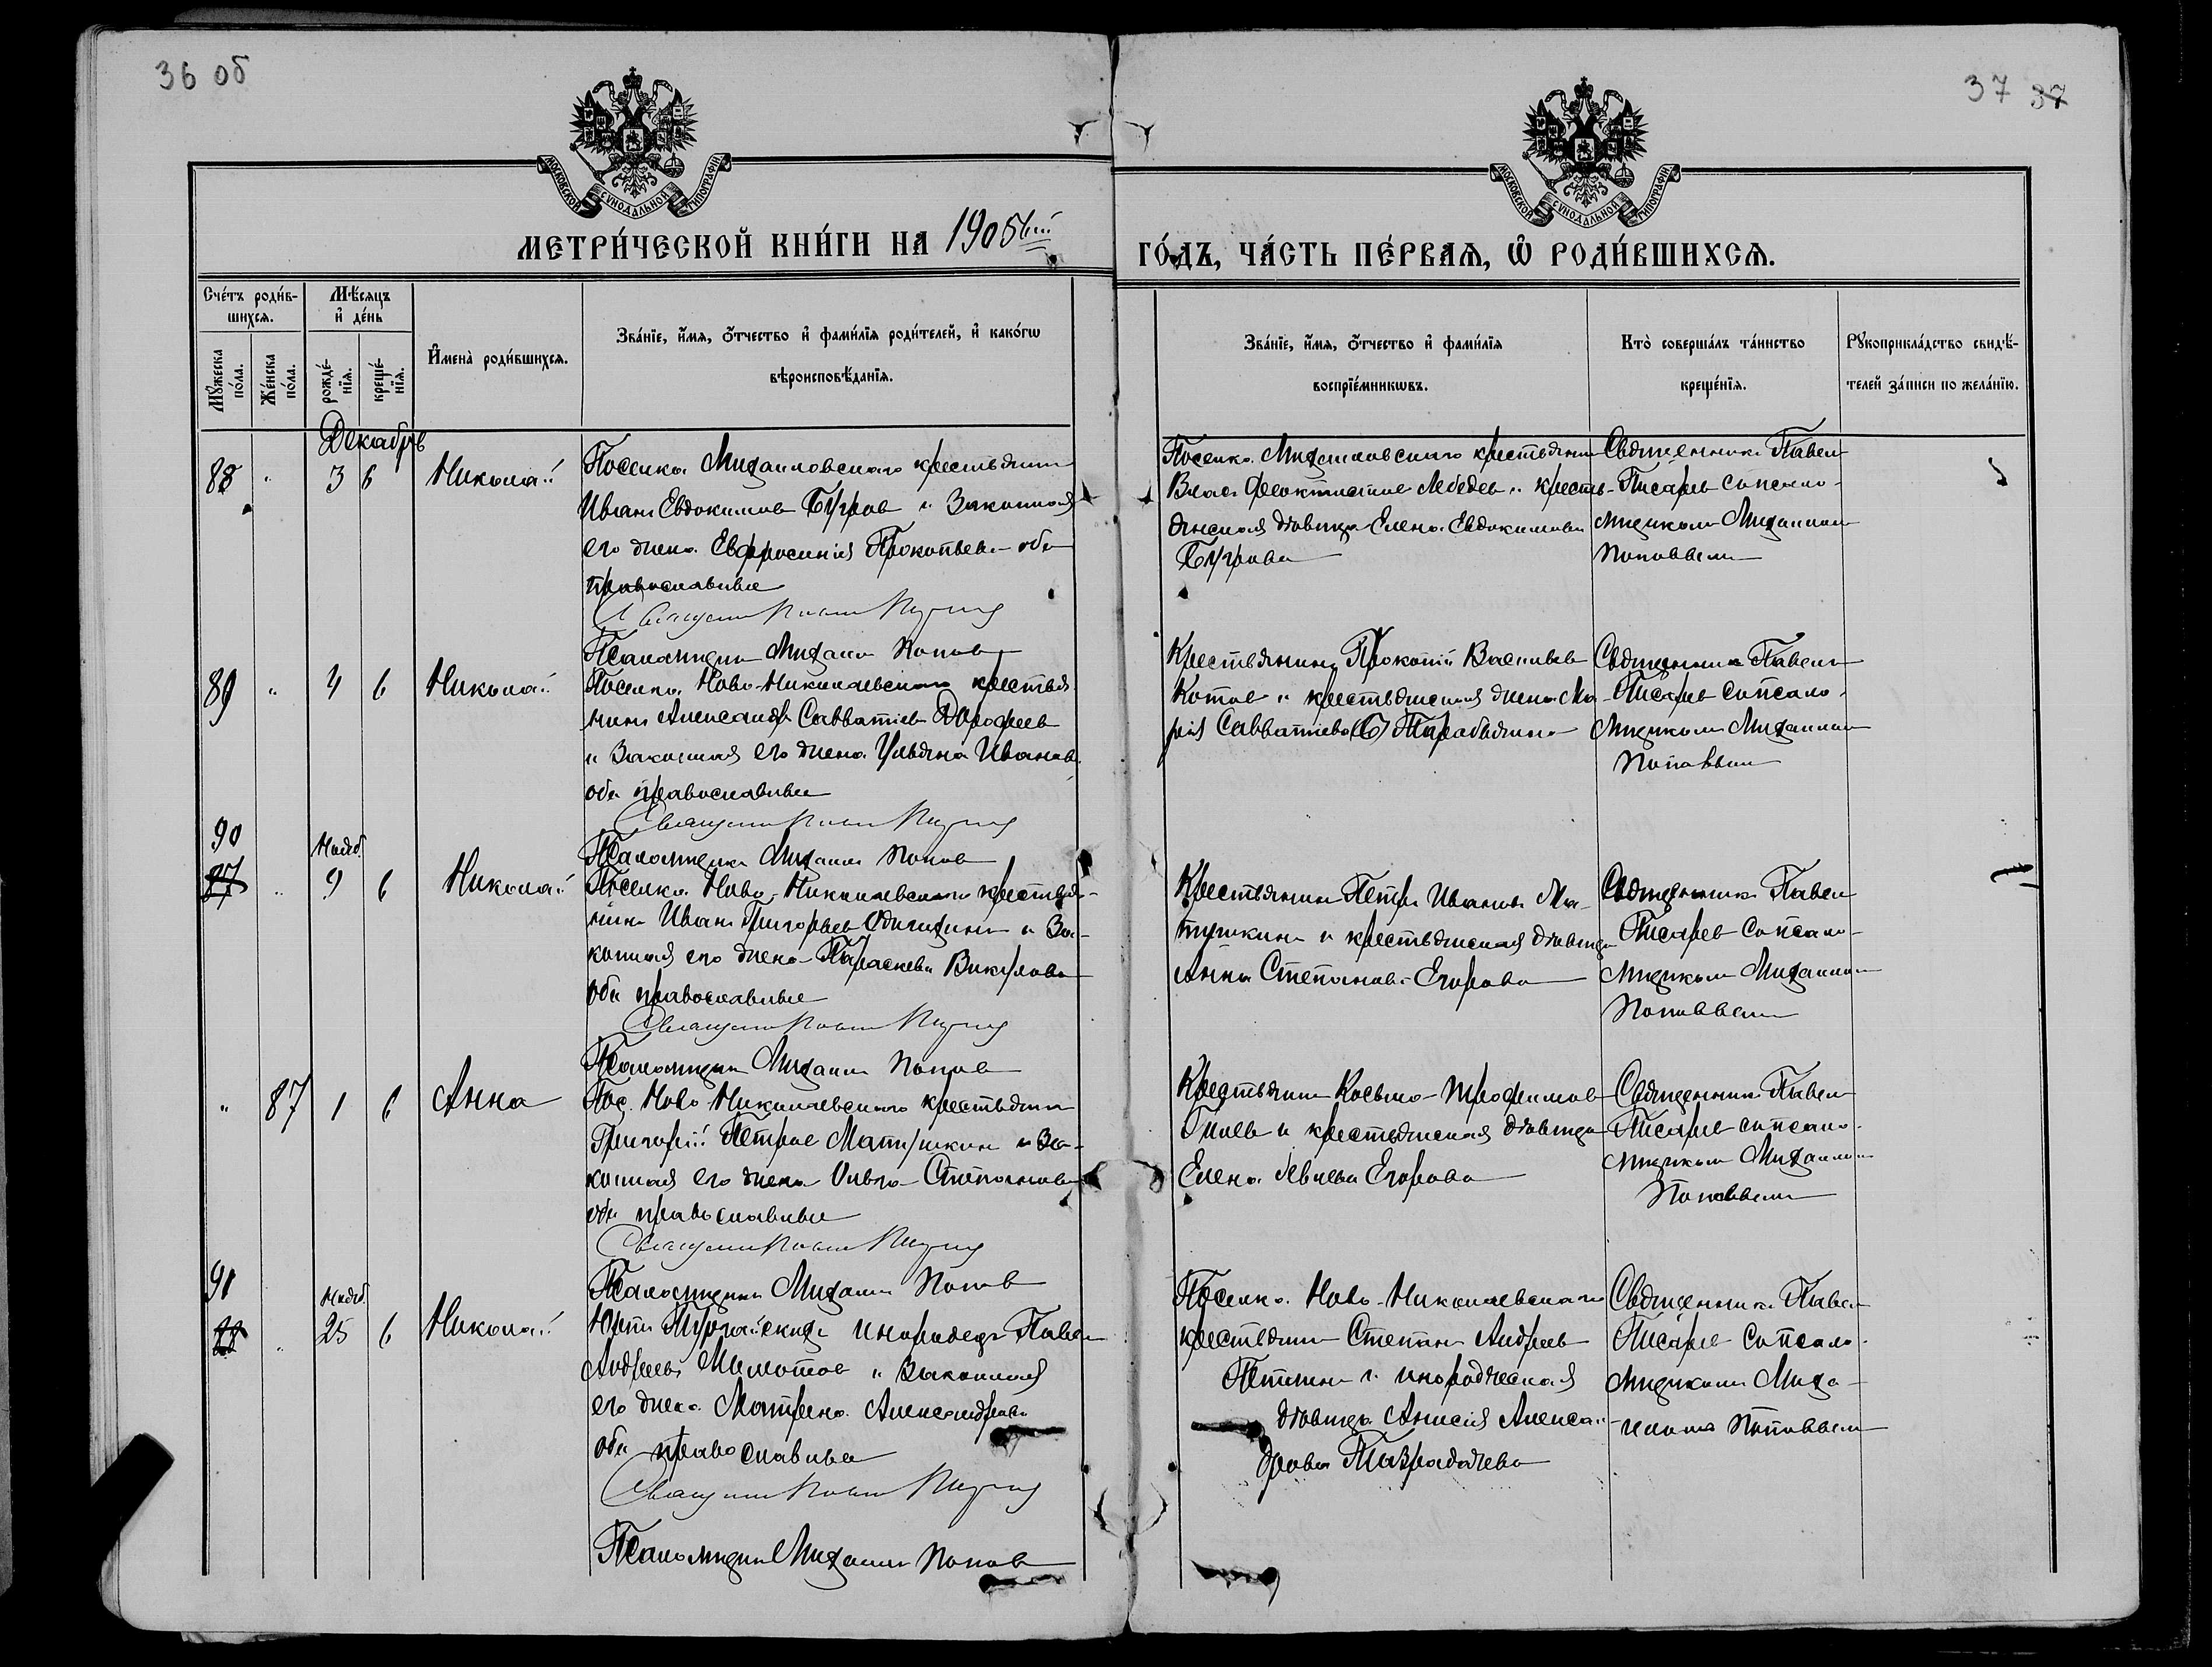 36 об
37 37
МОСКОВСКОЙ СѴНОДАЛЬНОЙ ТИПОГРАФІИ
МОСКОВСКОЙ СѴНОДАЛЬНОЙ ТИПОГРАФІИ
МЕТРИ́ЧЕСКОЙ КНИ́ГИ НА 1905ый
ГО́ДЪ, ЧА́СТЬ ПЕ́РВАѦ, Ѡ РОДИ́ВШИХСѦ.
Сче́тъ роди́в-
шихсѧ.
Мѣ́сѧцъ
и҆ де́нь
Мꙋ́жеска по́ла.
Же́нска по́ла.
рожде́-
нїѧ.
креще́-
нїѧ.
И҆мена̀ роди́вшихсѧ.
Зва́нїе, и҆́мѧ, ѻ҆́тчество и҆ фами́лїѧ роди́телей, и҆ како́гѡ
вѣроисповѣ́данїѧ.
Зва́нїе, и҆́мѧ, ѻ҆́тчество и҆ фами́лїѧ
воспрїе́мникѡвъ.
Кто̀ соверша́лъ та́инство
креще́нїѧ.
Рꙋкоприкла́дство свидѣ́-
телей за́писи по жела́нїю.
Декабрь
88 " 3 6 Николай
Поселка Михаиловскаго крестьянин
Иван Евдокимов Бугров и законная
его жена Евфросиния Прокопьева оба
православные
Священник Павел
Псаломщик Михаил Попов
Поселка Михаиловскаго крестьянин
Влас Феоктистов Лебедев и кресть-
янская девица Елена Евдокимова
Бугрова
Священник Павел
Писарев с псало-
мщиком Михаилом
Поповвым
89 " 4 6 Николай
Поселка Ново-Николаевскаго крестья
нин Александр Савватиев Дорофеев
и законная его жена Ульяна Иванов.
оба православные
Священник Павел
Псаломщик Михаил Попов
Крестьянин Прокопий Васильев
Котов и крестьянская жена Ма-
рия Савватиева Барабанина
Священник Павел
Писарев с псало-
мщиком Михаилом
Поповвым
90
87 " Нояб. 9 6 Николай
Поселка Ново-Николаевскаго крестья-
нин Иван Григорьев и за-
конная его жена Параскева Викулова
оба православные
Священник Павел
Псаломщик Михаил Попов
Крестьянин Петр Иванов Ма-
тушкин и крестьянская девица
Анна Степанова Егорова
Священник Павел
Писарев с псало-
мщиком Михаилом
Поповвым
" 87 1 6 Анна
Пос. Ново Николаевскаго крестьянин
Григорий Петров Матушкин и за-
конная его жена Ольга Степанова
оба православные
Священник Павел
Псаломщик Михаил Попов
Крестьянин Косьма Трофимов
и крестьянская девица
Елена Егорова
Священник Павел
Писарев с псало-
мщиком Михаилом
Поповвым
91
88 " Нояб. 25 6 Николай
инородец Павел
Андреев и законная
его жена Матрена Александрова
оба православные
Священник Павел
Псаломщик Михаил Попов
Поселка Ново-Николаевскаго
крестьянин Степан Андреев
и инородческая
девица Анисия Алекса-
дрова
Священник Павел
Писарев с псало-
мщиком Миха-
илом Поповвым